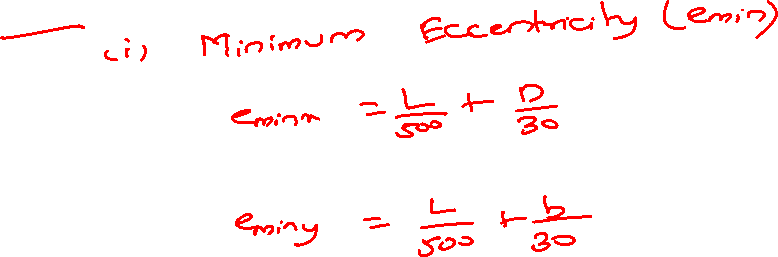 (i) Minimum Eccentricity (emin)
eminx = L/500 + D/30
eminy = L/500 + b/30